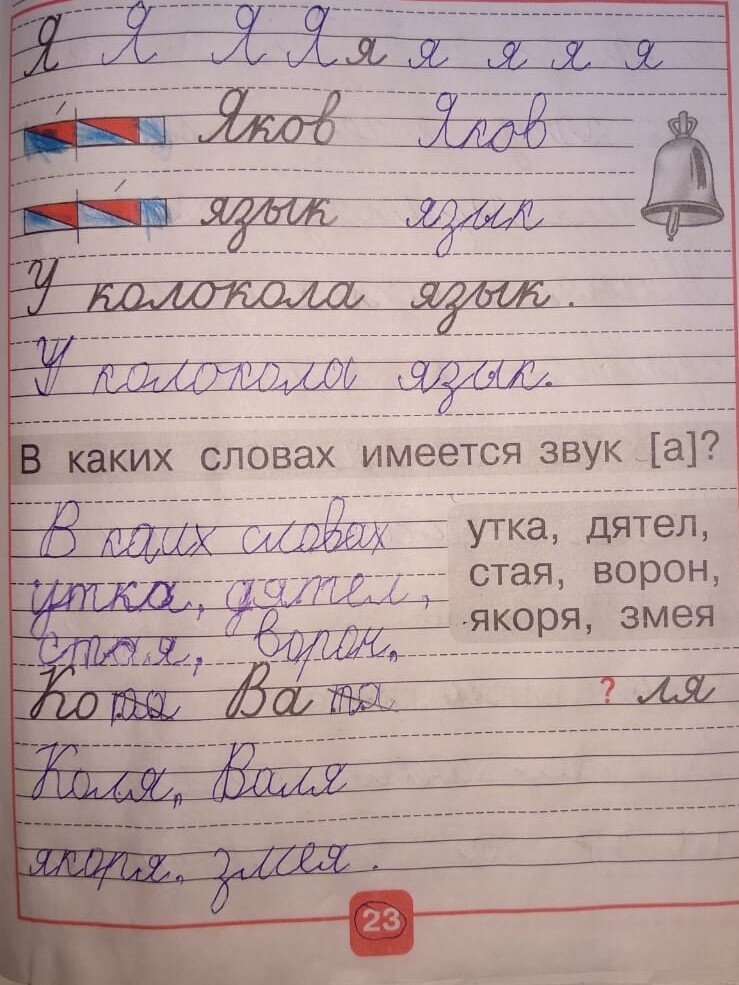 Я Я Я Я я я я я я
Яков Яков
язык язык
У колокола язык.
У колокола язык.
В каких словах имеется звук [а]?
В каих словах
утка, дятел,
стая, ворон,
утка, дятел,
стая, ворон,
якоря, змея
Коля Валя ? ля
Коля, Валя
якоря, змея.
23